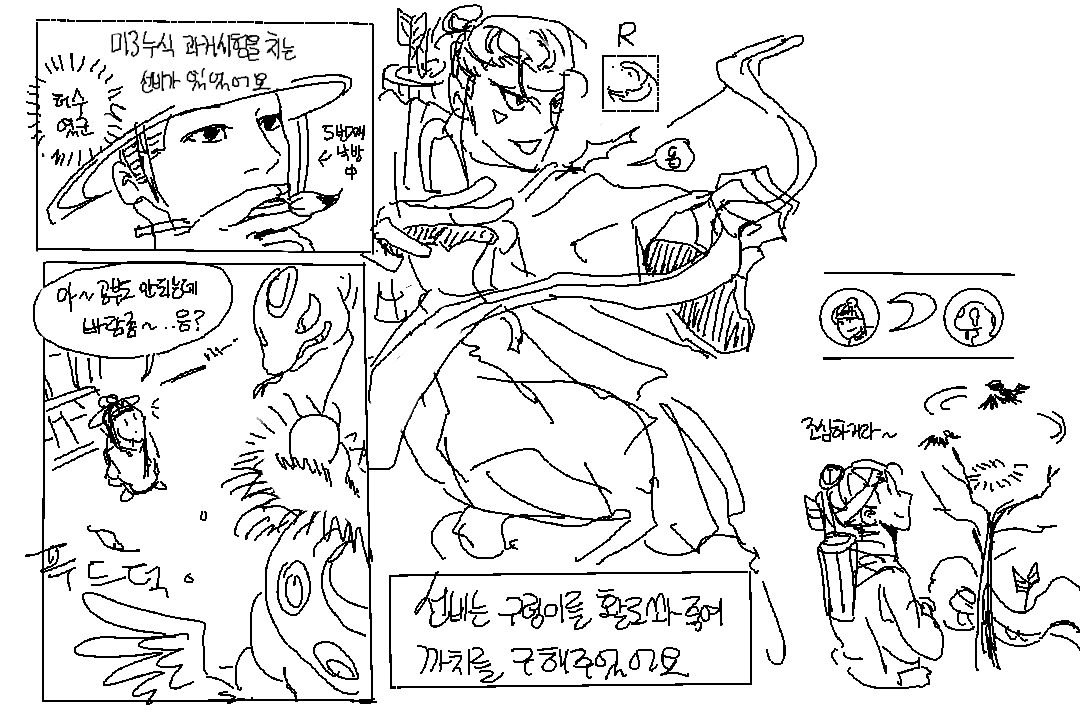 미3누식 과거시험을 치는
선비가 있었어요
허수
였군
5번째
낙방
中
R
읍
아~ 공부도 안되는데
바람좀~...응?
푸드덕
조심하거라~
선비는 구렁이를 활로 쏴 죽여
까치를 구해주었어요